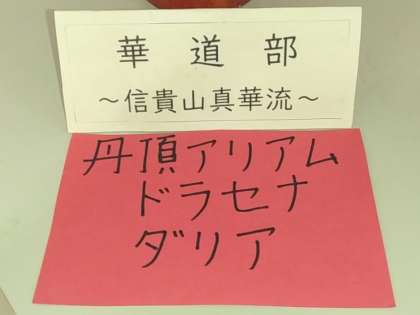 華道部
～信貴山真華流～
丹頂アリアム
ドラセナ
ダリア